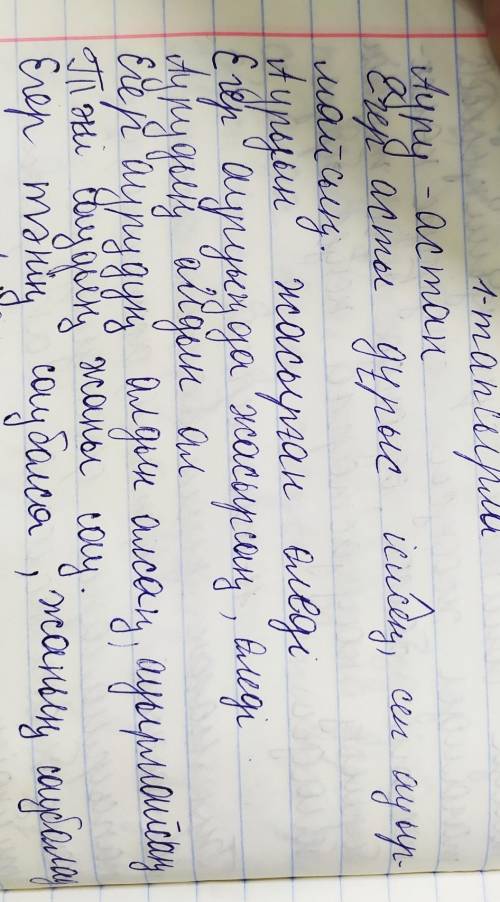 1-тапсырма
Ауру - астан
Егер асты дұрыс ішсең, сен ауыр-
майсың.
Ауруын жасырған өледі
Егер ауруыңда жасырсаң, өледі
Аурудың алдын ал
Егер аурудұң алдын алсаң, ауырмайсаң
Тәні саудың жаны сау.
Егер тәнің саубалса, жаның саубалад